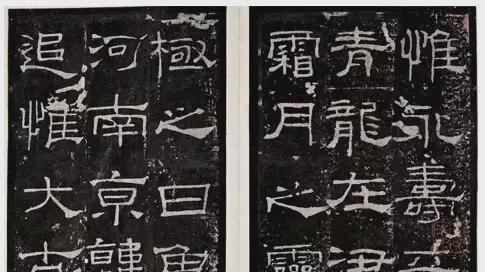 惟永壽
青龍在
霜月之靈
極之日魯
河南京韓
追惟大古